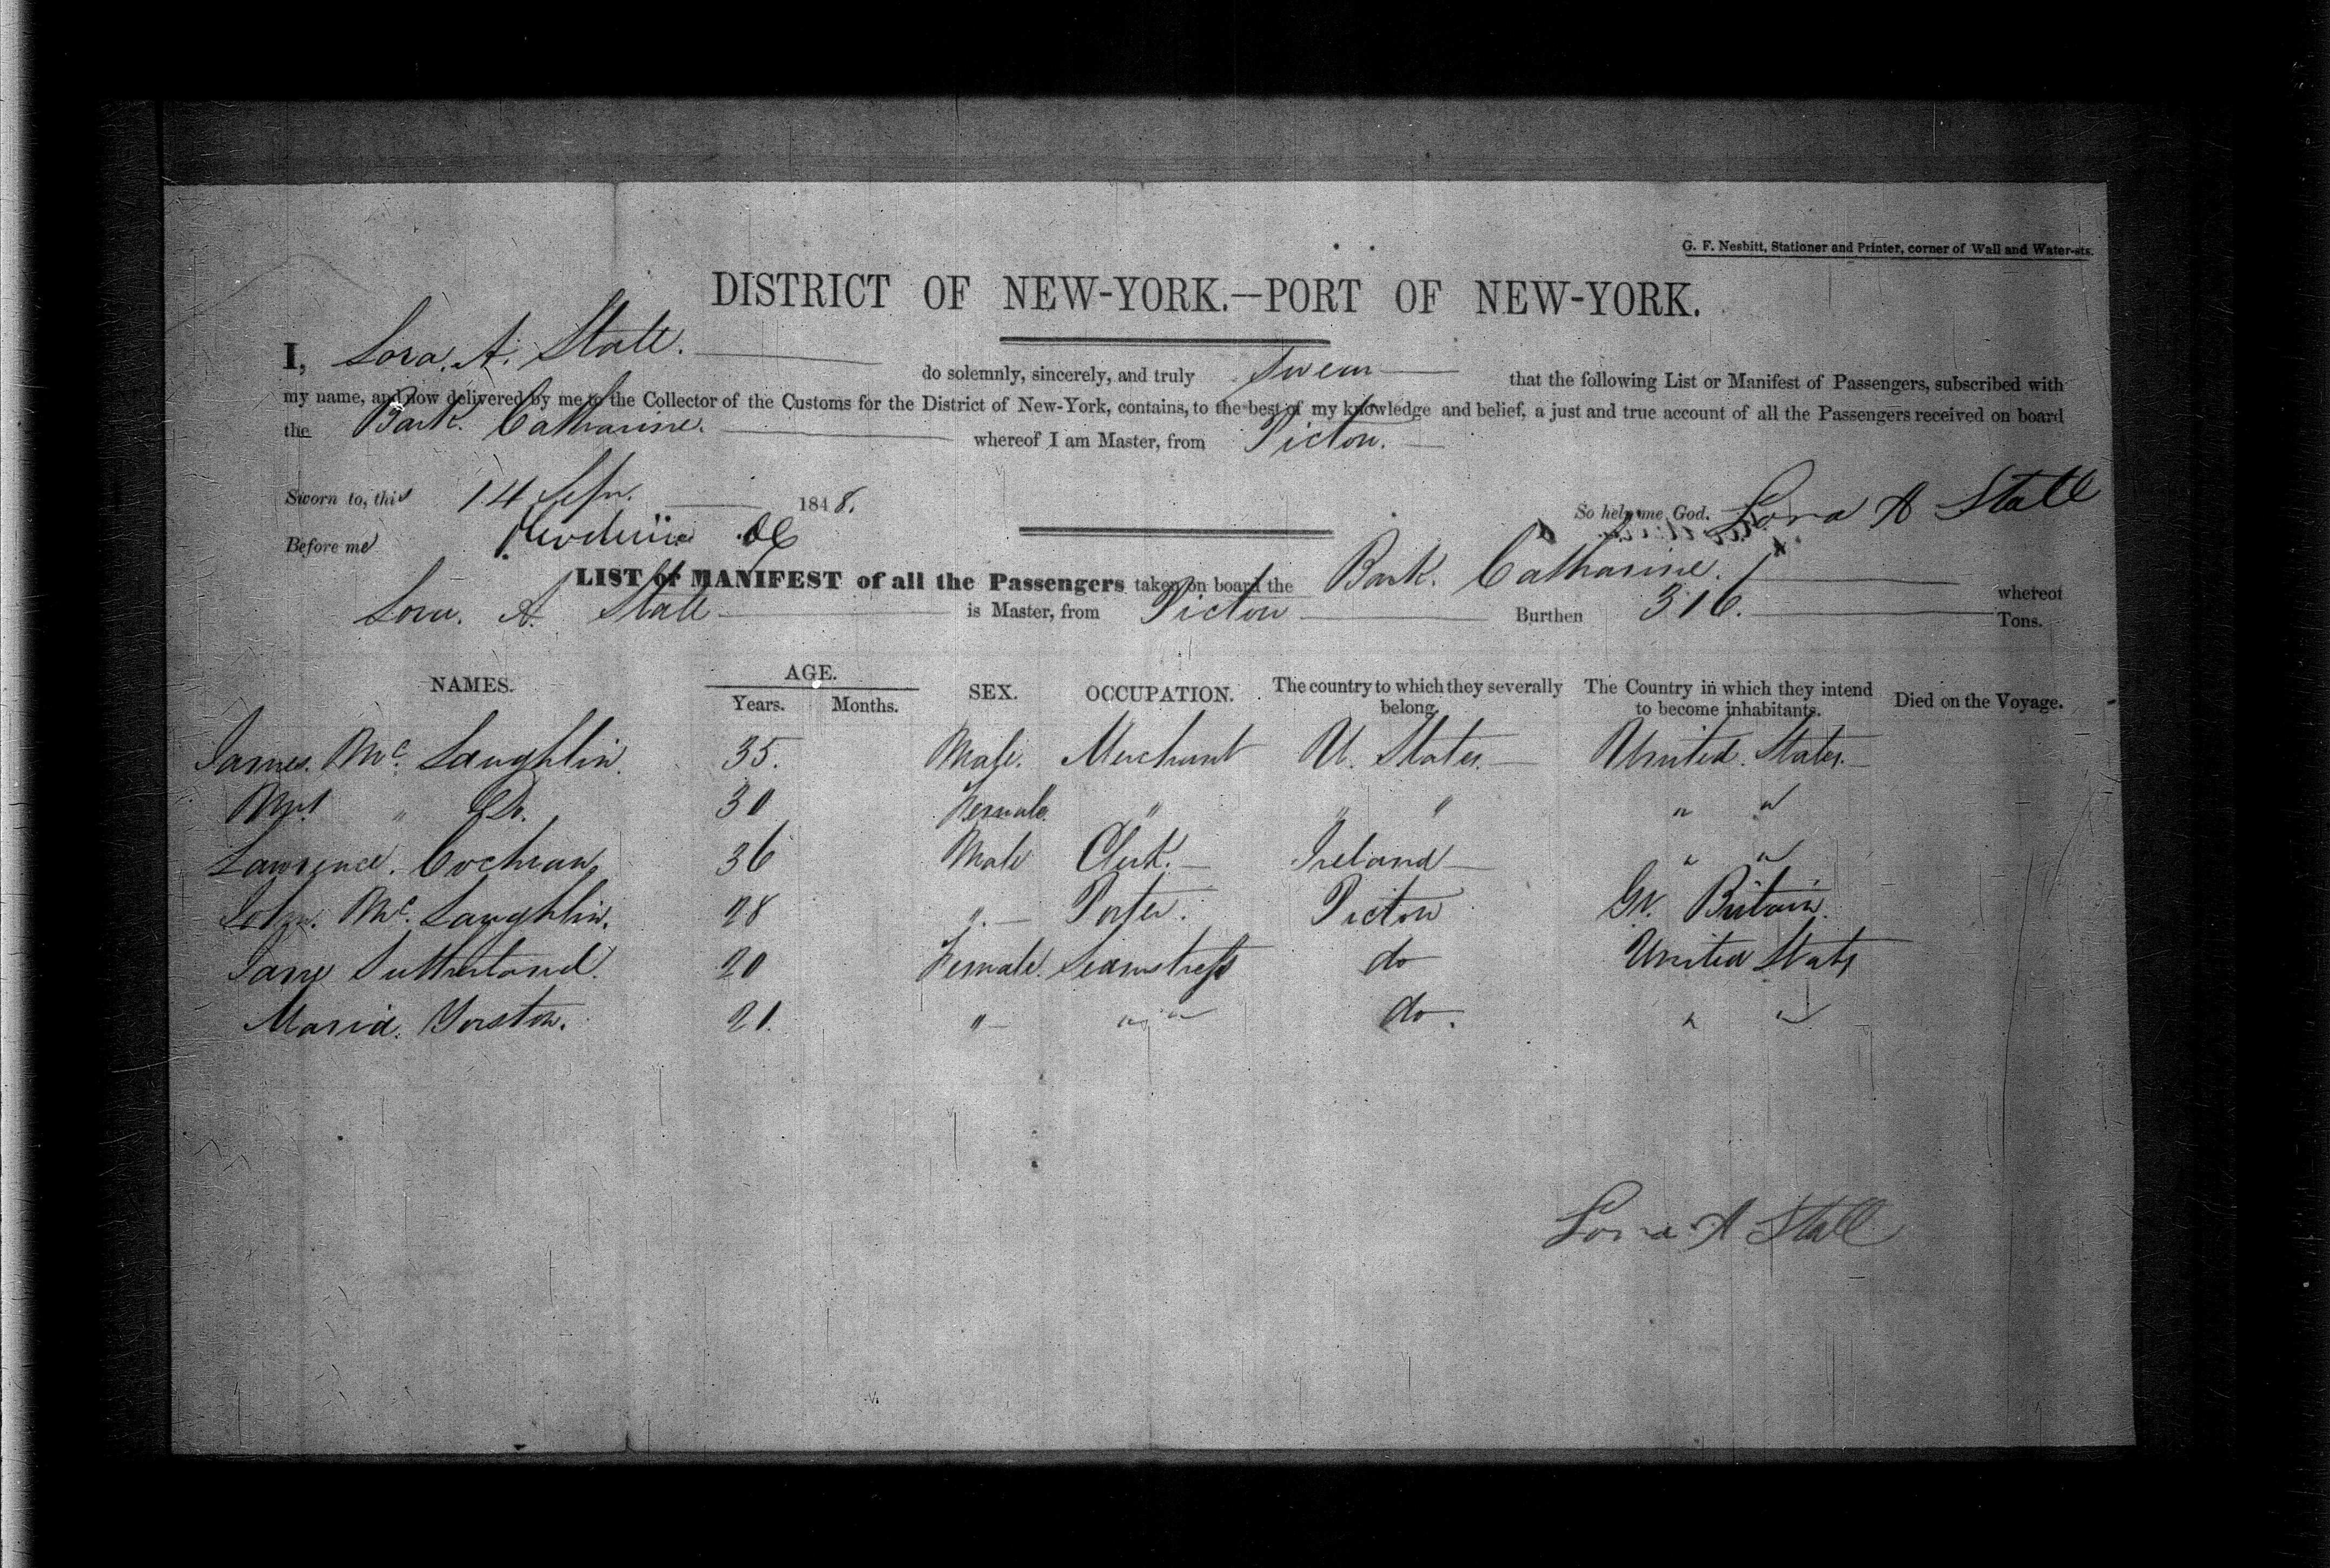 G. F. Nesbitt, Stationer and Printer, corner of Wall and Water-sts.
DISTRICT OF NEW-YORK.—PORT OF NEW-YORK.
I, Lora. A. Stall. do solemnly, sincerely, and truly swear that the following List or Manifest of Passengers, subscribed with
my name, and now delivered by me to the Collector of the Customs for the District of New-York, contains, to the best of my knowledge and belief, a just and true account of all the Passengers received on board
the Bark. Catharine. whereof I am Master, from Pictou.
Sworn to, this 14 Sepr. 1848. So help me God. Lora A Stall
Before me
LIST or MANIFEST of all the Passengers taken on board the Bark. Catharine. whereof
Lora. A. Stall is Master, from Pictou Burthen 316. Tons.
NAMES. AGE. Years. Months. SEX. OCCUPATION. The country to which they severally belong. The Country in which they intend to become inhabitants. Died on the Voyage.
James. Mc. Laughlin. 35. Male. Merchant U. States. United. States.
Mrs " Do. 30 Female. " " " " "
Lawrence. Cochran 36 Male Clerk. Ireland " "
John. Mc. Laughlin. 28 " Porter. Pictou Gt. Britain.
Jane Sutherland. 20 Female. Seamstress do United States
Maria. Yorston. 21. " " " do. " "
Lora A Stall